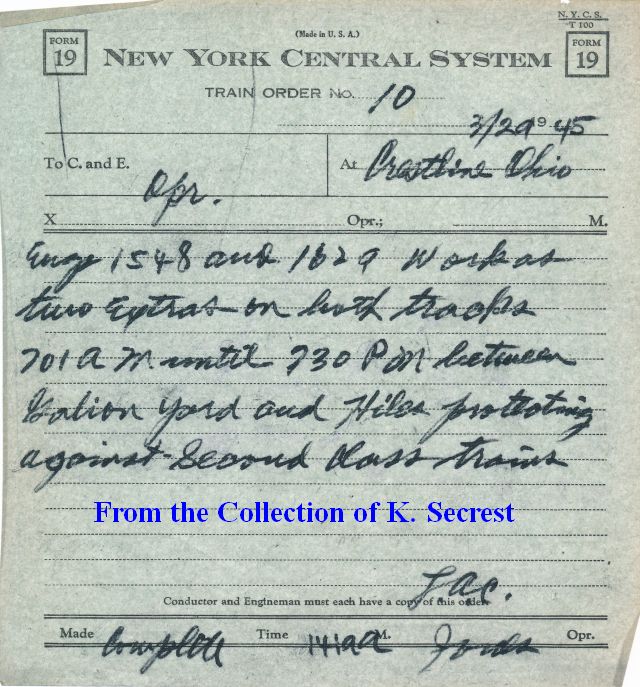 N. Y. C. S.
T 100
(Made in U. S. A.)
FORM 19 NEW YORK CENTRAL SYSTEM FORM 19
TRAIN ORDER No. 10
3/29 1945
To C. and E. At Crestline Ohio
Opr.
X Opr.; M.
Engs 1548 and 1629 Work as
two Extras on both tracks
701 A M until 730 P M between
Galion Yard and Hiles protecting
against Second Class trains
From the Collection of K. Secrest
Conductor and Engineman must each have a copy of this order.
Made Complete Time 141 A M. Opr.